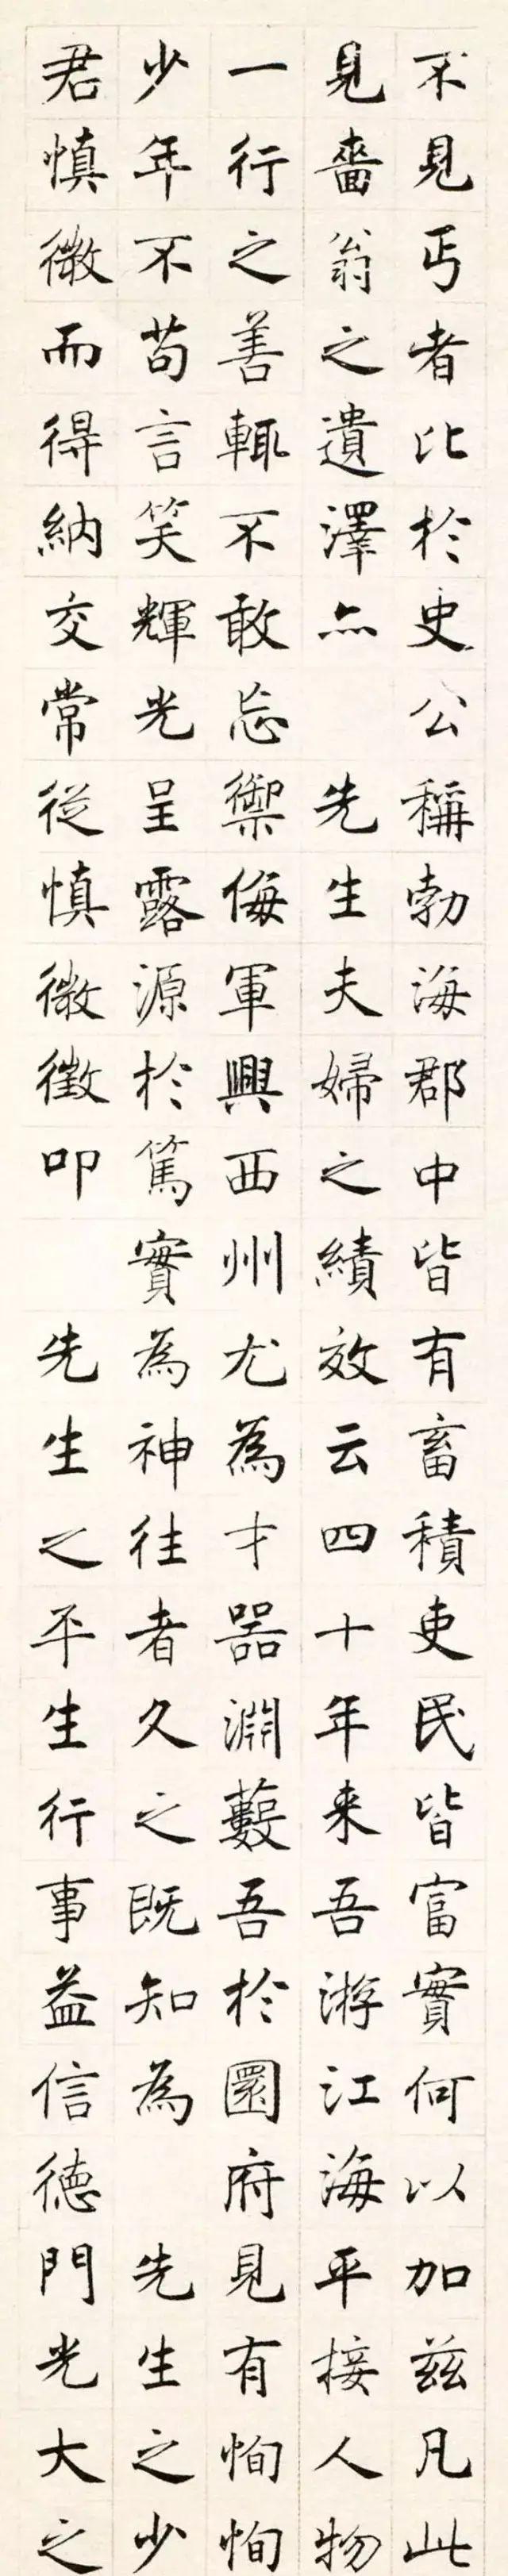 不見丐者比於史公稱勃海郡中皆有畜積吏民皆富實何以加兹凡此
見嗇翁之遺澤亦先生夫婦之績效云四十年来吾游江海平接人物
一行之善輒不敢忘禦侮軍興西州尤為才器淵藪吾於圜府見有恂恂
少年不苟言笑輝光呈露源於篤實為神往者久之既知為先生之少
君慎微而得納交常從慎微徵叩先生之平生行事益信德門光大之